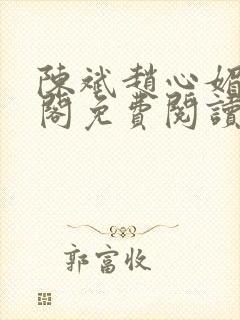 陳斌趙心媚
閣免費閱讀
郭富收